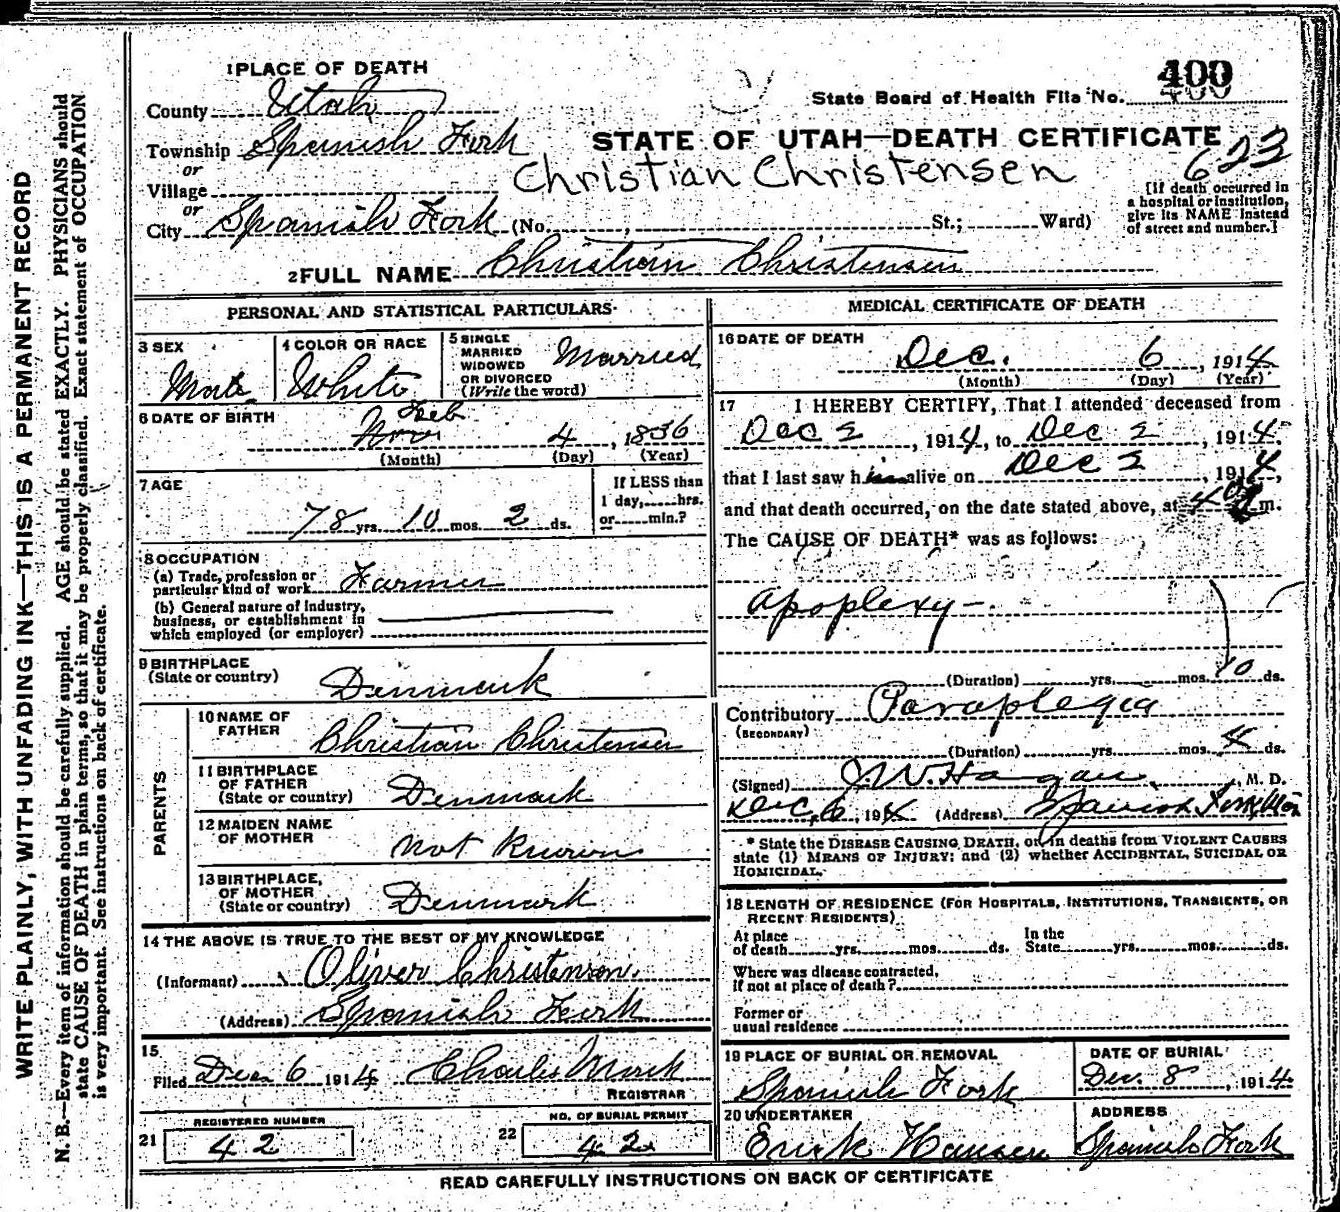 1 PLACE OF DEATH
County Utah
State Board of Health File No. 400
Township Spanish Fork
STATE OF UTAH—DEATH CERTIFICATE
623
or
Village
Christian Christensen
or
City Spanish Fork (No. , St.; Ward)
[If death occurred in
a hospital or institution,
give its NAME instead
of street and number.]
2 FULL NAME Christian Christensen
PERSONAL AND STATISTICAL PARTICULARS
3 SEX
Male
4 COLOR OR RACE
White
5 SINGLE
MARRIED
WIDOWED
OR DIVORCED
(Write the word)
Married
6 DATE OF BIRTH
Feb
Nov 4, 1836
(Month) (Day) (Year)
7 AGE
78 yrs. 10 mos. 2 ds.
If LESS than
1 day, hrs.
or min.?
8 OCCUPATION
(a) Trade, profession or
particular kind of work Farmer
(b) General nature of industry,
business, or establishment in
which employed (or employer)
9 BIRTHPLACE
(State or country)
Denmark
PARENTS
10 NAME OF
FATHER
Christian Christensen
11 BIRTHPLACE
OF FATHER
(State or country)
Denmark
12 MAIDEN NAME
OF MOTHER
Not Known
13 BIRTHPLACE,
OF MOTHER
(State or country)
Denmark
14 THE ABOVE IS TRUE TO THE BEST OF MY KNOWLEDGE
(Informant) Oliver Christensen.
(Address) Spanish Fork
15
Filed Dec 6 1914 Charles Monk
REGISTRAR
21 REGISTERED NUMBER
42
22 NO. OF BURIAL PERMIT
42
MEDICAL CERTIFICATE OF DEATH
16 DATE OF DEATH
Dec. 6, 1914
(Month) (Day) (Year)
17 I HEREBY CERTIFY, That I attended deceased from
Dec 2, 1914, to Dec 2, 1914,
that I last saw him alive on Dec 2, 1914,
and that death occurred, on the date stated above, at 4 m.
The CAUSE OF DEATH* was as follows:
Apoplexy—
(Duration) yrs. mos. 10 ds.
Contributory Paraplegia
(SECONDARY)
(Duration) yrs. mos. 4 ds.
(Signed) J.W. Hagan, M. D.
Dec, 6, 1914 (Address) Spanish Fork, Utah
* State the DISEASE CAUSING DEATH, or, in deaths from VIOLENT CAUSES
state (1) MEANS OF INJURY; and (2) whether ACCIDENTAL, SUICIDAL OR
HOMICIDAL.
18 LENGTH OF RESIDENCE (FOR HOSPITALS, INSTITUTIONS, TRANSIENTS, OR
RECENT RESIDENTS)
At place
of death yrs. mos. ds.
In the
State yrs. mos. ds.
Where was disease contracted,
if not at place of death?
Former or
usual residence
19 PLACE OF BURIAL OR REMOVAL
Spanish Fork
DATE OF BURIAL
Dec. 8, 1914
20 UNDERTAKER
Erick Hansen
ADDRESS
Spanish Fork
READ CAREFULLY INSTRUCTIONS ON BACK OF CERTIFICATE
WRITE PLAINLY, WITH UNFADING INK—THIS IS A PERMANENT RECORD
N. B.—Every item of information should be carefully supplied. AGE should be stated EXACTLY. PHYSICIANS should
state CAUSE OF DEATH in plain terms, so that it may be properly classified. Exact statement of OCCUPATION
is very important. See instructions on back of certificate.